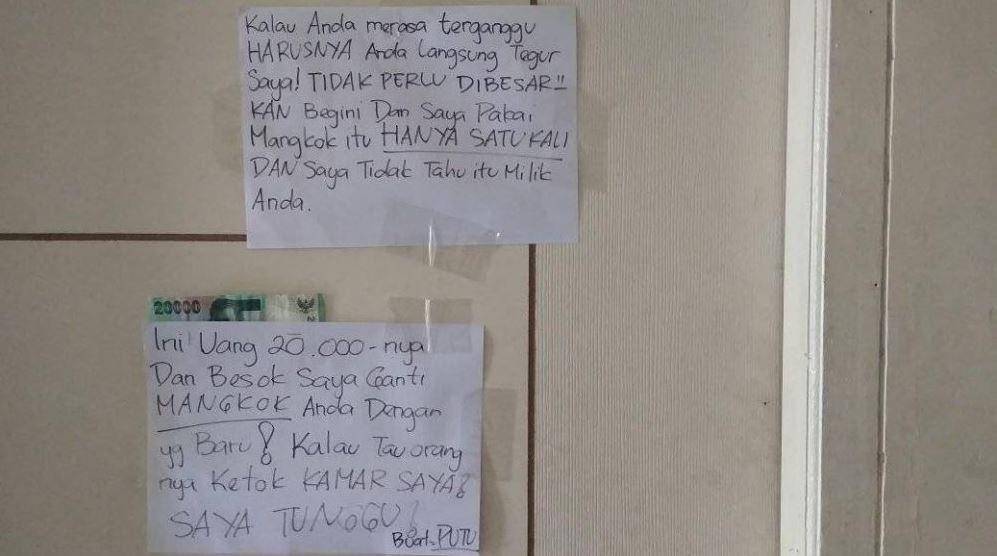 Kalau Anda merasa terganggu
HARUSNYA Anda Langsung Tegur
Saya! TIDAK PERLU DIBESAR!!
KAN Begini Dan Saya Pakai
Mangkok itu HANYA SATU KALI
DAN Saya Tidak Tahu itu Milik
Anda.
20000
Ini Uang 20.000-nya
Dan Besok Saya Ganti
MANGKOK Anda Dengan
yg Baru! Kalau Tau orang
nya Ketok KAMAR SAYA!
SAYA TUNGGU!
Buat-PUTU